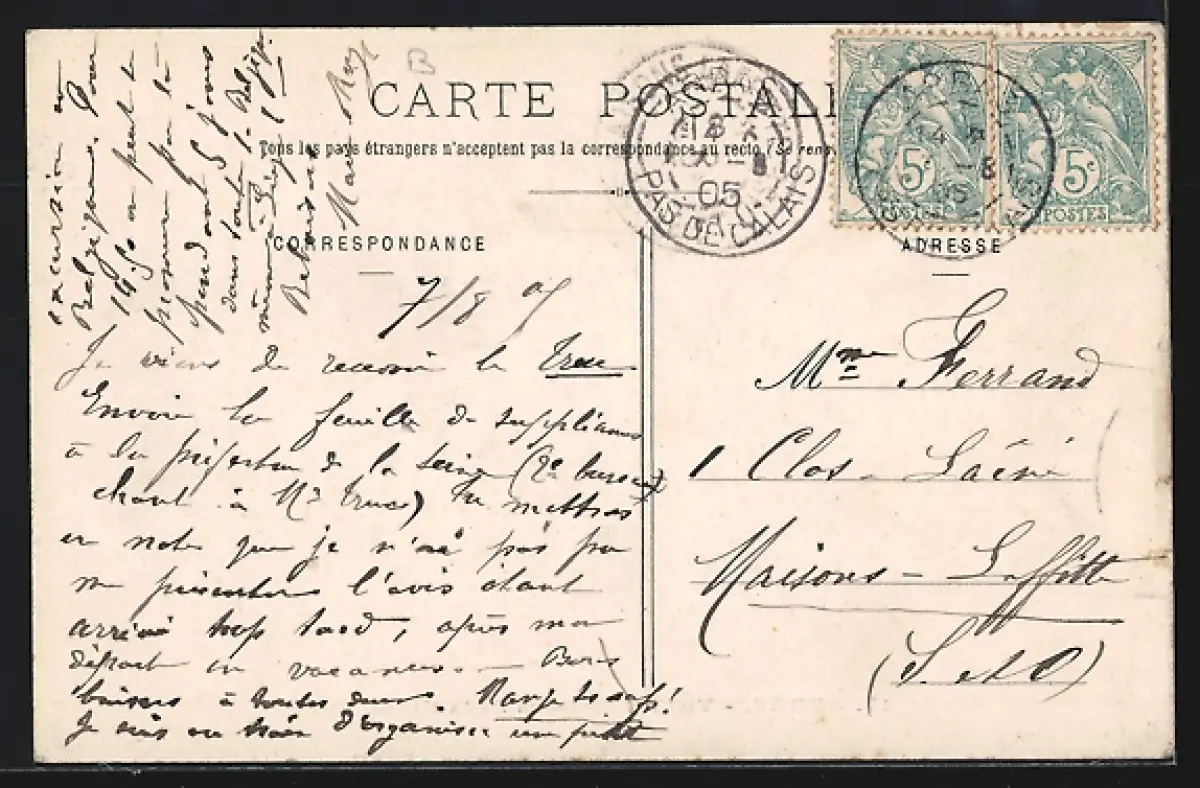 CARTE POSTALE
Tous les pays étrangers n'acceptent pas la correspondance au recto
CORRESPONDANCE
ADRESSE
05
PAS DE CALAIS
5c
POSTES
5c
POSTES
7/8 05
Je viens de recevoir le
Envoie la feuille de
à la préfecture de la Seine (2e bureau
à Mr ) tu mettras
en note que je n'ai pas pu
me présenter l'avis étant
arrivé trop tard, après mon
départ en vacances. Bons
baisers à toutes deux
Je suis en train d'organiser une petite
excursion en
Belgique. Pour
14,50 on peut se
promener par là
pendant 5 jours
dans toute la Belgique
même à Liège
Mme Ferrand
1 Clos
Maisons-Laffitte
(S. et O)